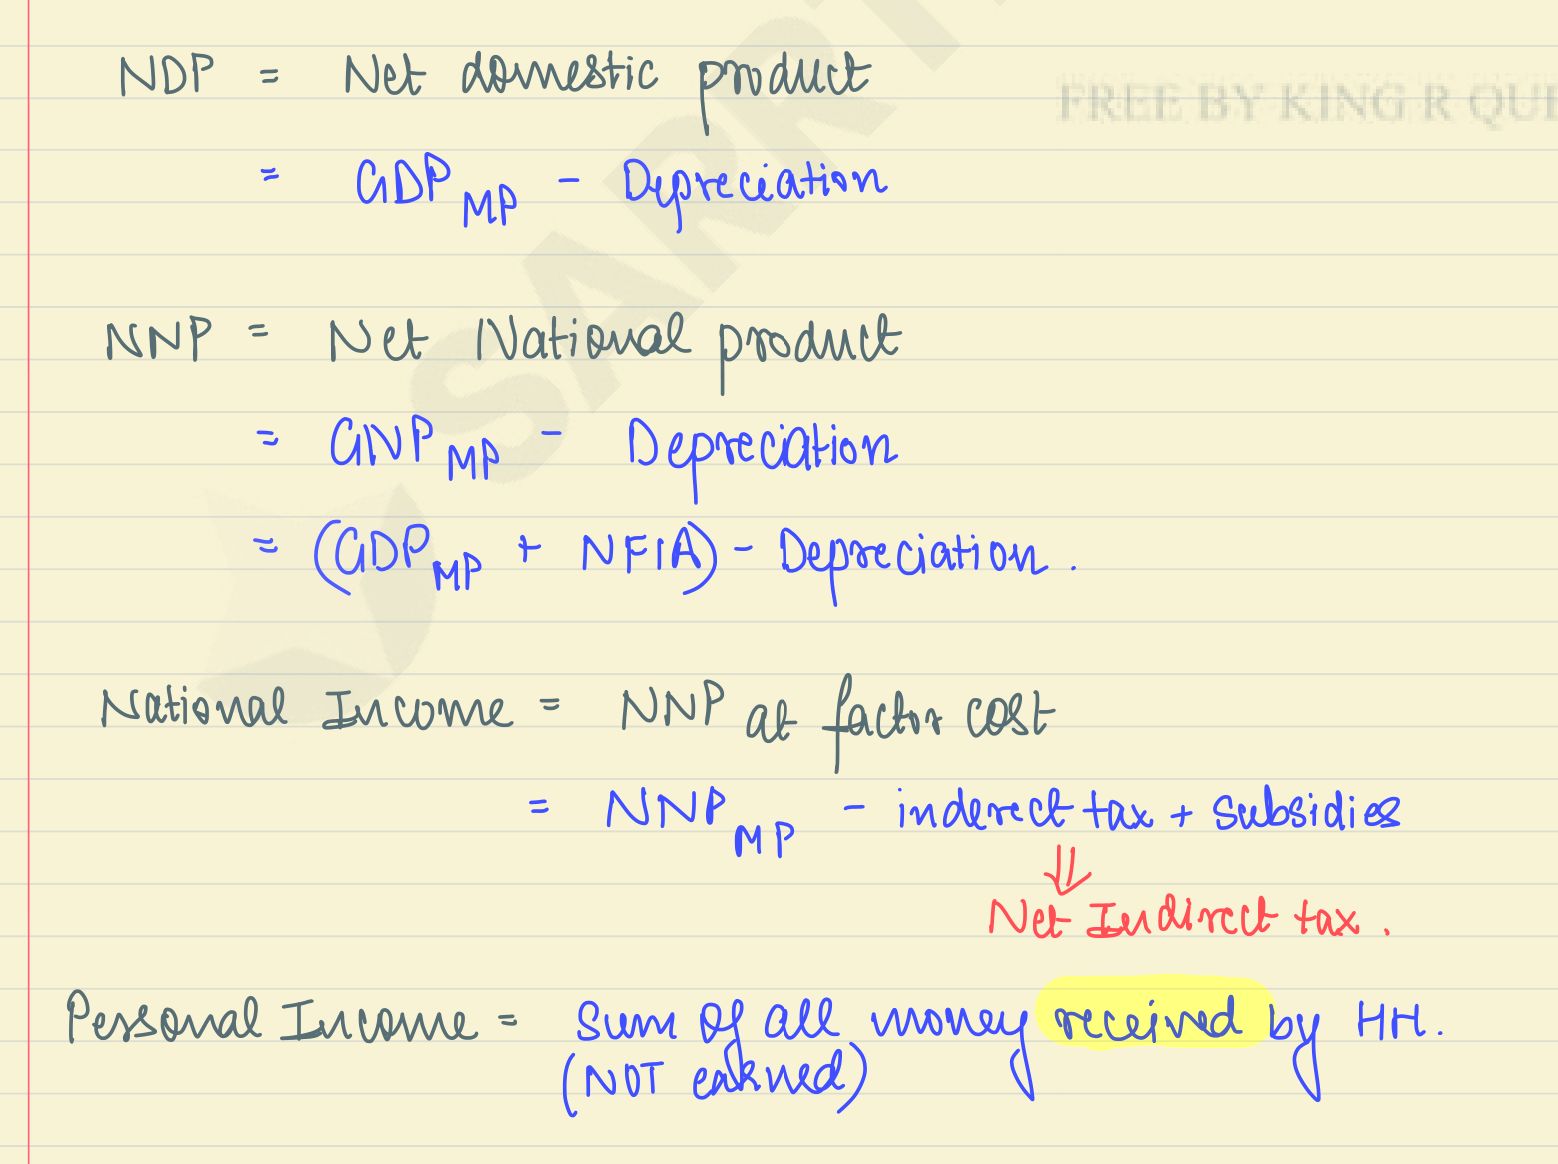 NDP = Net domestic product
FREE BY KING R QUE
= GDP MP - Depreciation
NNP = Net National product
= GNP MP - Depreciation
= (GDP MP + NFIA) - Depreciation.
National Income = NNP at factor cost
= NNP MP - inderect tax + subsidies
⇓
Net Indirect tax.
Personal Income = Sum of all money received by HH.
(NOT earned)
SART